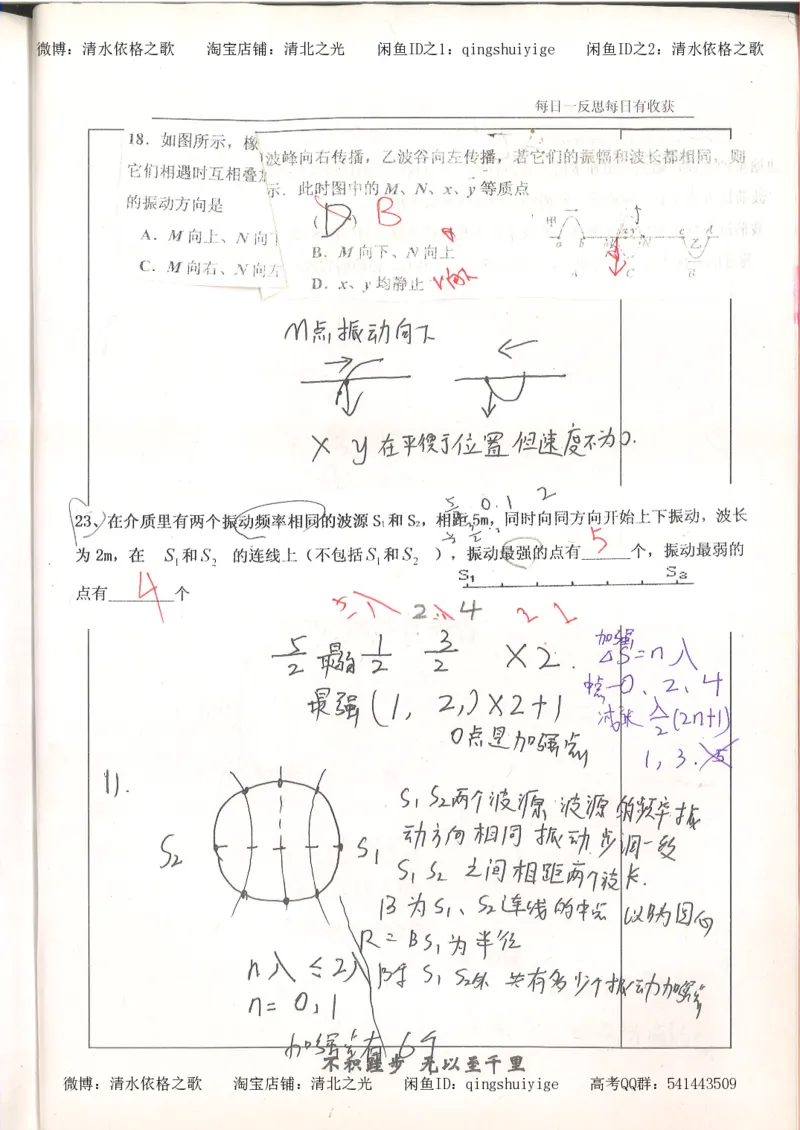 微博：清水依格之歌 淘宝店铺：清北之光 闲鱼ID之1：qingshuiyige 闲鱼ID之2：清水依格之歌
每日一反思每日有收获
18．如图所示，橡
波峰向右传播，乙波谷向左传播，若它们的振幅和波长都相同，则
它们相遇时互相叠加
示．此时图中的 M、N、x、y 等质点
的振动方向是
( D ) B
A．M 向上、N 向下
B．M 向下、N 向上
C．M 向右、N 向左
D．x、y 均静止
甲 a b M x y N c d 乙
A C B
M点振动向下
x y 在平衡位置但速度不为0.
0. 1 2
23、在介质里有两个振动频率相同的波源 S₁和 S₂，相距 5m，同时向同方向开始上下振动，波长
为 2m，在 S₁和S₂ 的连线上（不包括S₁和S₂ ），振动最强的点有 5 个，振动最弱的
点有 4 个
S₁ S₂
2 4
5/2 最弱 1/2 3/2 ×2.
加强 ΔS=nλ
0、2、4
最强(1, 2,)×2+1
λ/2(2n+1)
0点是加强点
1, 3. 5
1).
S₂ S₁
S₁ S₂两个波源 波源的频率振
动方向相同 振动步调一致
S₁ S₂ 之间相距两个波长.
B 为 S₁、S₂连线的中点 以B为圆心
R = BS₁为半径
nλ ≤ 2λ
共有多少个振动加强点
n= 0, 1
加强点有 6个
不积跬步 无以至千里
微博：清水依格之歌 淘宝店铺：清北之光 闲鱼ID：qingshuiyige 高考QQ群：541443509